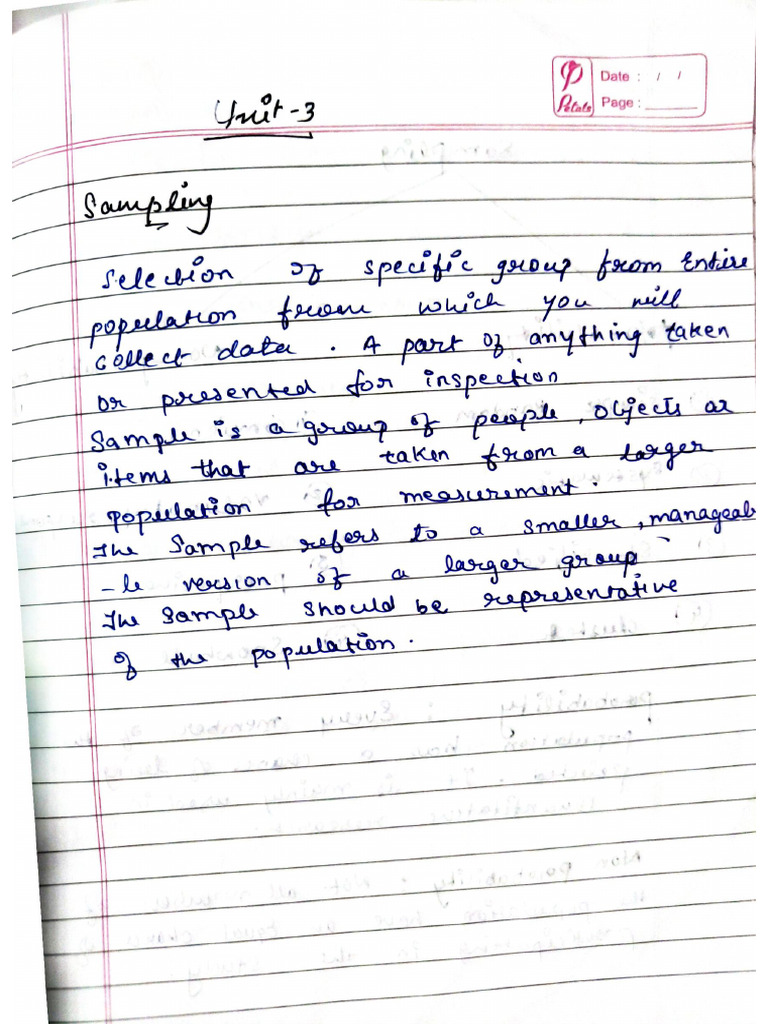 Date : / /
Petals Page :
Unit-3
Sampling
Selection of specific group from Entire
population from which you will
collect data. A part of anything taken
or presented for inspection
Sample is a group of people, objects or
items that are taken from a larger
population for measurement.
The Sample refers to a smaller, manageab
-le version of a larger group
The sample should be representative
of the population.